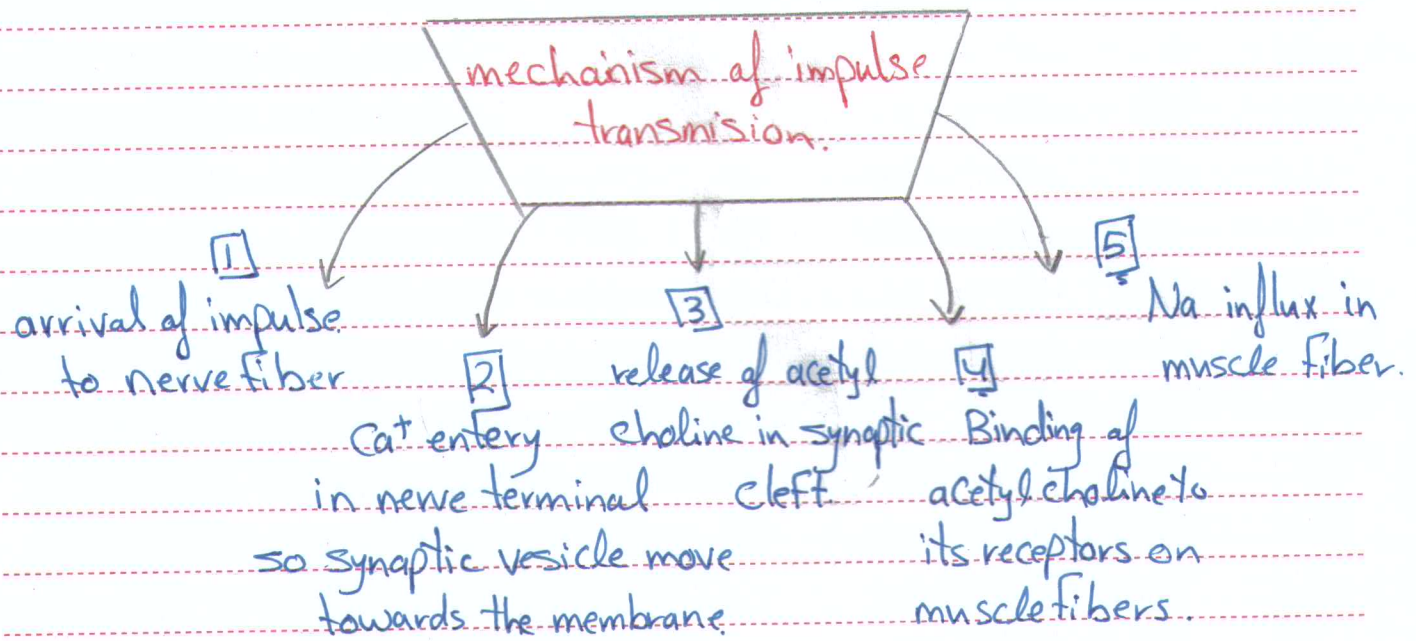 mechanism of impulse
transmision.
1
arrival of impulse
to nerve fiber
2
Ca+ entery
in nerve terminal
so synaptic vesicle move
towards the membrane.
3
release of acetyl
choline in synaptic
cleft
4
Binding of
acetyl choline to
its receptors on
muscle fibers.
5
Na influx in
muscle fiber.